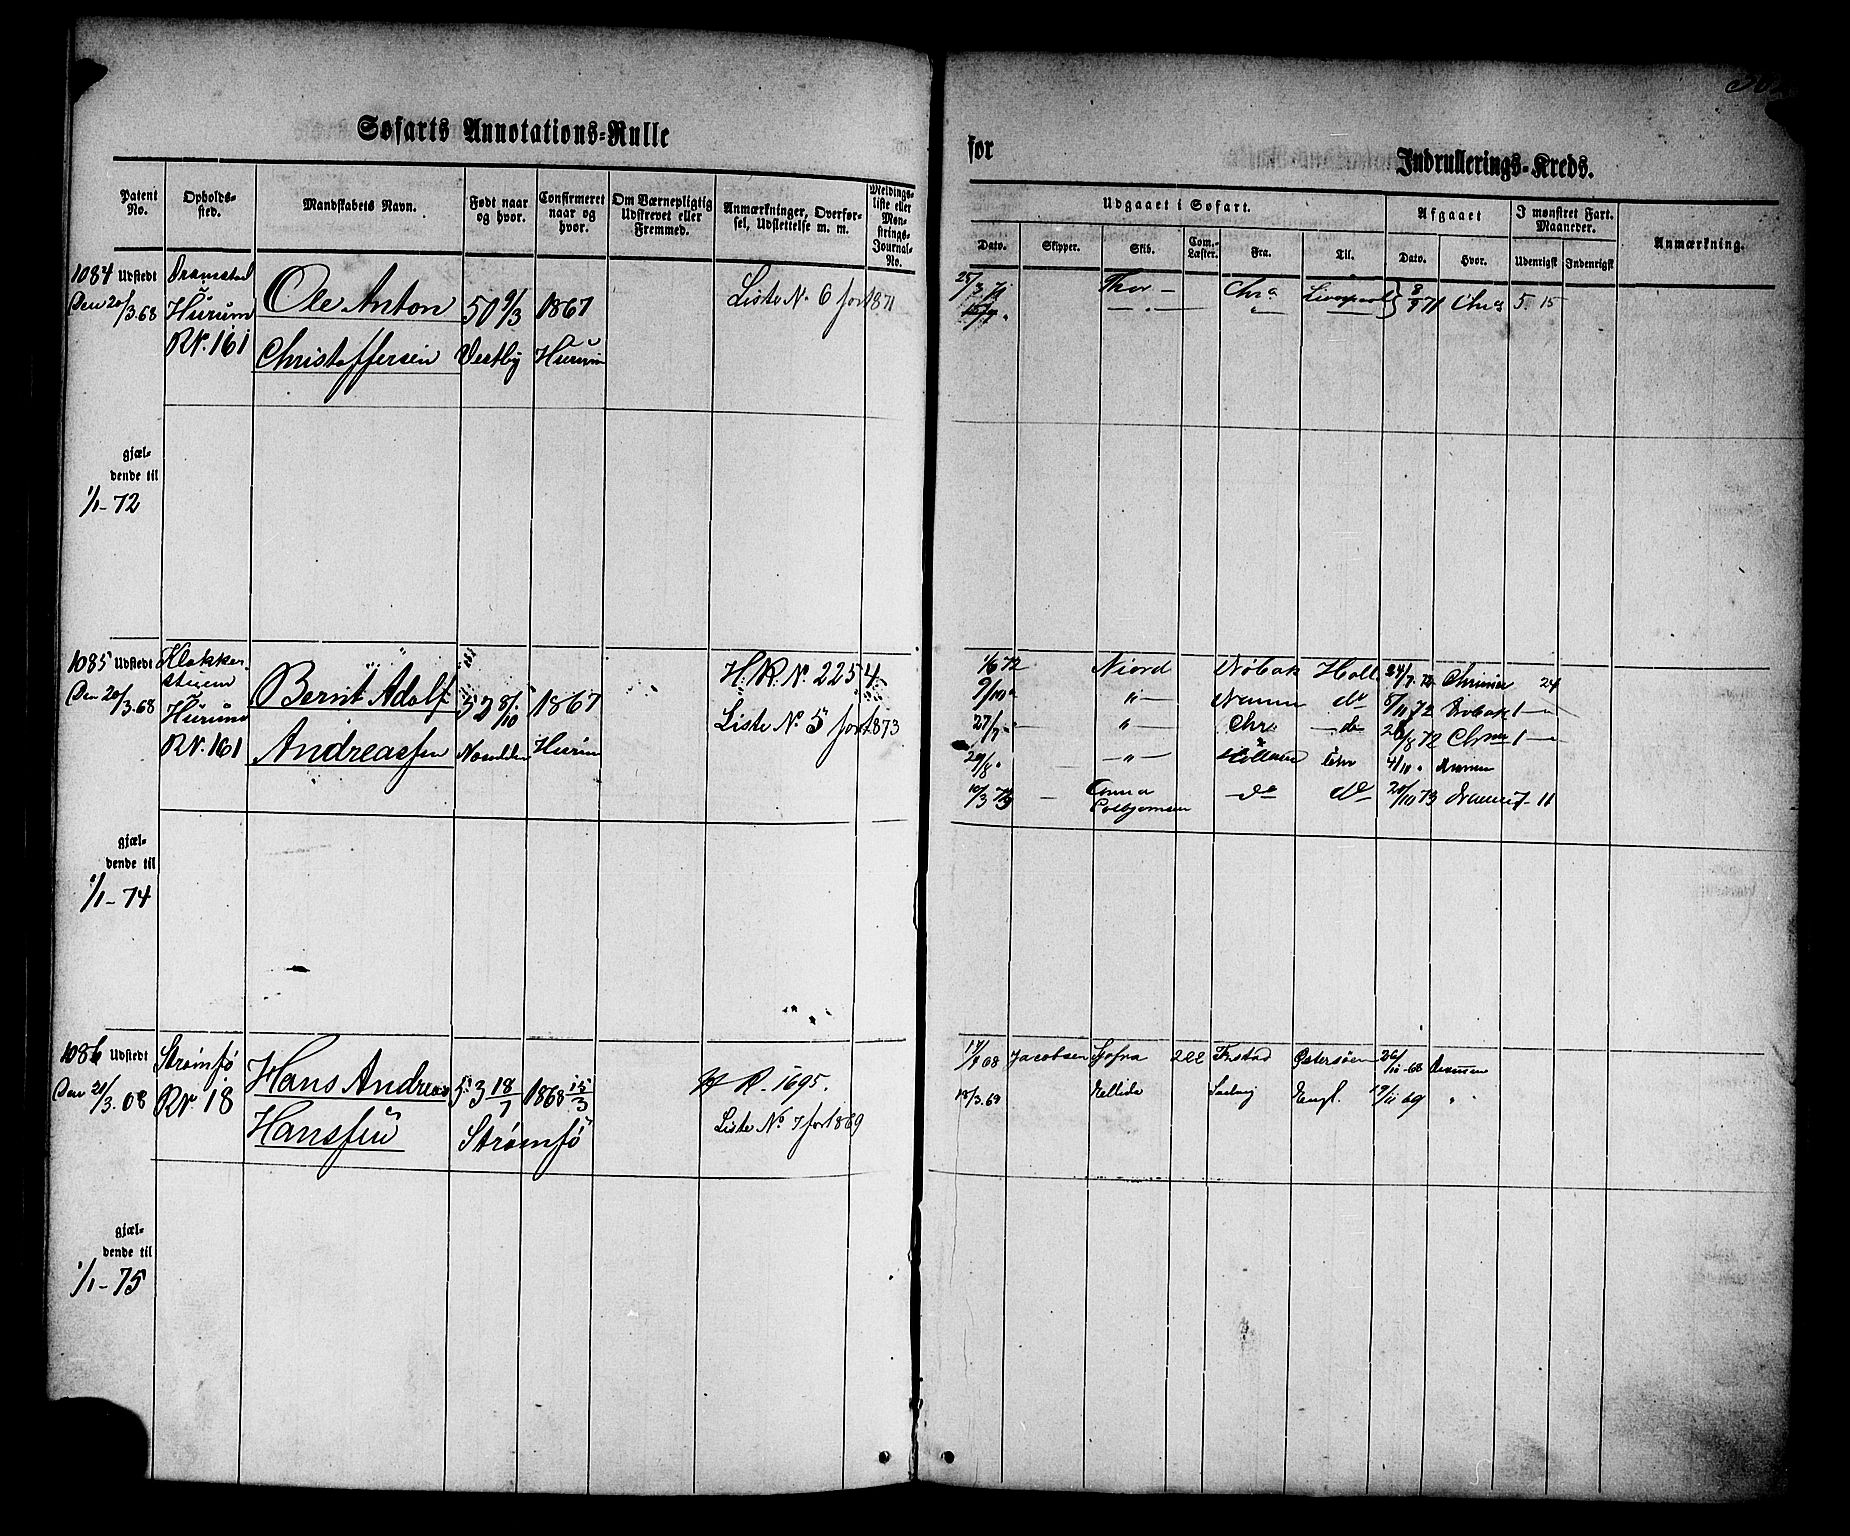 Søfarts Annotations-Rulle
Patent No.
Opholds-sted.
Mandskabets Navn.
Født naar og hvor.
Confirmeret naar og hvor.
Om Værnepligtig Udskrevet eller Fremmed.
Anmærkninger, Overførsel, Udslettelse m. m.
Meldings-liste eller Mønstrings-Journal-No.
1084 Udstedt
Den 20/3.68
Hurum
RN. 161
Ole Anton
Christoffersen
50 9/3
Vestby
1867
Hurum
Liste No 6 for 1871
gjæl-
dende til
1/1-72
1085 Udstedt
Den 20/3.68
Klokker-
stuen
Hurum
RN. 161
Bernt Adolf
Andreassen
52 8/10
1867
Hurum
H.R. No 2254
Liste No 5 for 1873
gjæl-
dende til
1/1-74
1086 Udstedt
Den 21/3.68
Strømsø
RN. 18
Hans Andreas
Hanssen
53 18/7
Strømsø
1868 15/3
H R. 1695.
Liste No. 7 for 1869
gjæl-
dende til
1/1-75
for
Indrullerings-Kreds.
Udgaaet i Søfart.
Afgaaet
I mønstret Fart. Maaneder.
Anmærkning.
Dato.
Skipper.
Skib.
Com.-Læster.
Fra.
Til.
Dato.
Hvor.
Udenrigsk
Indenrigsk
Thor — Chra Liverpool 8/9 71 Chra 5 - 15
1/6 72 Niord Holl. 24/7.72 24
9/10 " " — do 5/11 72 1 —
27/7 " — Chr — do 72 1 —
20/8 " — " — Holland Chr 4/10
10/3 73 — Anna Colbjørnsen — do do 20/10 73 7 - 11
68 Jacobsen 222 Østersøen 26/10-68 Drammen
18/3.69 Ellida Engl. 19/11 69 "